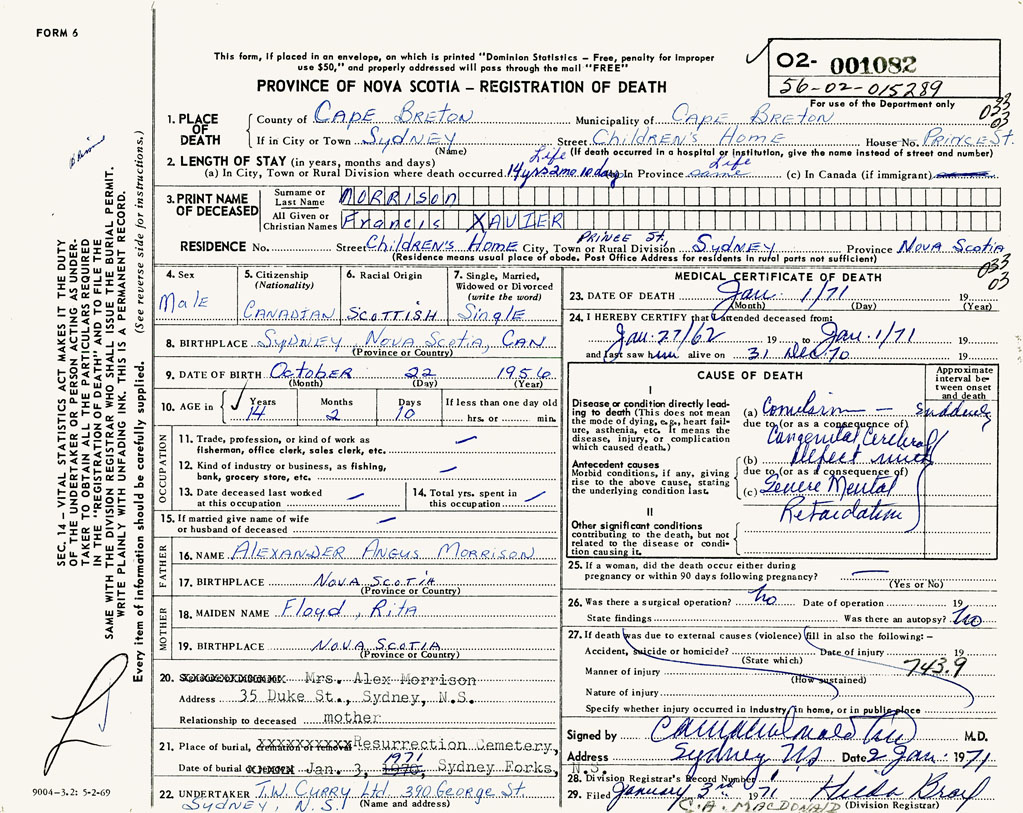 FORM 6
This form, if placed in an envelope, on which is printed "Dominion Statistics – Free, penalty for improper
use $50," and properly addressed will pass through the mail "FREE"
PROVINCE OF NOVA SCOTIA – REGISTRATION OF DEATH
02- 001082
56-02-015289
For use of the Department only
033
03
1. PLACE OF DEATH
County of CAPE BRETON Municipality of CAPE BRETON
If in City or Town SYDNEY Street Children's Home House No. PRINCE St.
(Name) (If death occurred in a hospital or institution, give the name instead of street and number)
2. LENGTH OF STAY (in years, months and days) Life Life
(a) In City, Town or Rural Division where death occurred 14 yrs 2 mo. 10 days (b) In Province same (c) In Canada (if immigrant)
3. PRINT NAME OF DECEASED
Surname or Last Name MORRISON
All Given or Christian Names Francis XAVIER
RESIDENCE No. Street Children's Home City, Town or Rural Division PRINCE St. SYDNEY Province NOVA SCOTIA
(Residence means usual place of abode. Post Office Address for residents in rural parts not sufficient)
033
03
4. Sex Male
5. Citizenship (Nationality) CANADIAN
6. Racial Origin SCOTTISH
7. Single, Married, Widowed or Divorced (write the word) Single
8. BIRTHPLACE SYDNEY NOVA SCOTIA, CAN
(Province or Country)
9. DATE OF BIRTH October 22 1956
(Month) (Day) (Year)
10. AGE in Years 14 Months 2 Days 10 If less than one day old
hrs. or min.
OCCUPATION
11. Trade, profession, or kind of work as
fisherman, office clerk, sales clerk, etc. —
12. Kind of industry or business, as fishing,
bank, grocery store, etc. —
13. Date deceased last worked
at this occupation —
14. Total yrs. spent in
this occupation —
15. If married give name of wife
or husband of deceased —
FATHER
16. NAME ALEXANDER ANGUS MORRISON
17. BIRTHPLACE NOVA SCOTIA
(Province or Country)
MOTHER
18. MAIDEN NAME Floyd, Rita
19. BIRTHPLACE NOVA SCOTIA
(Province or Country)
20. Mrs. Alex Morrison
Address 35 Duke St., Sydney, N.S.
Relationship to deceased mother
21. Place of burial, Resurrection Cemetery,
Date of burial Jan. 3, 1971 Sydney Forks, N.S.
22. UNDERTAKER T.W. CURRY Ltd 390 George St.
SYDNEY, N.S. (Name and address)
MEDICAL CERTIFICATE OF DEATH
23. DATE OF DEATH Jan. 1/71 19
(Month) (Day) (Year)
24. I HEREBY CERTIFY that I attended deceased from:
Jan. 27/62 19 to Jan. 1/71 19
and last saw him alive on 31 Dec. 70 19
CAUSE OF DEATH
Approximate interval between onset and death
I
Disease or condition directly leading to death (This does not mean
the mode of dying, e.g., heart failure, asthenia, etc. It means the
disease, injury, or complication
which caused death.)
(a) Convulsion — Suddenly
due to (or as a consequence of)
Congenital Cerebral
(b) Defect with
due to (or as a consequence of)
(c) Severe Mental
Retardation
Antecedent causes
Morbid conditions, if any, giving
rise to the above cause, stating
the underlying condition last.
II
Other significant conditions
contributing to the death, but not
related to the disease or condition causing it.
25. If a woman, did the death occur either during
pregnancy or within 90 days following pregnancy? —
(Yes or No)
26. Was there a surgical operation? No Date of operation 19
State findings Was there an autopsy? No
27. If death was due to external causes (violence) fill in also the following: –
Accident, suicide or homicide? Date of injury 19
(State which)
743.9
Manner of injury
(How sustained)
Nature of injury
Specify whether injury occurred in industry, in home, or in public place
Signed by M.D.
Address Sydney NS Date 2 Jan 1971
28. Division Registrar's Record Number 1
29. Filed January 3rd 1971
(Division Registrar)
C.A. MACDONALD
SEC. 14 – VITAL STATISTICS ACT MAKES IT THE DUTY
OF THE UNDERTAKER OR PERSON ACTING AS UNDER-
TAKER TO OBTAIN ALL THE PARTICULARS REQUIRED
IN THE "REGISTRATION OF DEATH" AND TO FILE THE
SAME WITH THE DIVISION REGISTRAR WHO SHALL ISSUE THE BURIAL PERMIT.
WRITE PLAINLY WITH UNFADING INK. THIS IS A PERMANENT RECORD.
Every item of information should be carefully supplied. (See reverse side for instructions.)
9004-3.2: 5-2-69